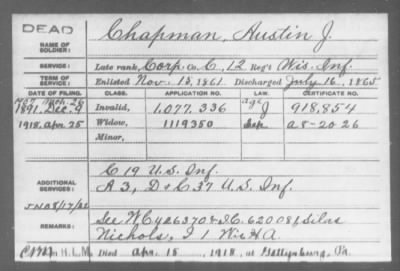 DEAD
NAME OF SOLDIER:
Chapman, Austin J.
SERVICE:
Late rank, Corp. Co. C, 12 Reg't Wis. Inf.
TERM OF SERVICE:
Enlisted Nov. 15, 1861. Discharged July 16, 1865
DATE OF FILING. CLASS. APPLICATION NO. LAW. CERTIFICATE NO.
1891. Dec. 9 Invalid, 1,077,336 age J 918,854
1918. Apr. 25 Widow, 1119350 A8-20-26
Minor,
ADDITIONAL SERVICES:
C 19 U.S. Inf.
A 3, D & C 37 U.S. Inf.
REMARKS:
See WC 426370 & C. 62008, Silas
Nichols, I 1 Wis H A
Died Apr. 15, 1918, at Gettysburg, Pa.